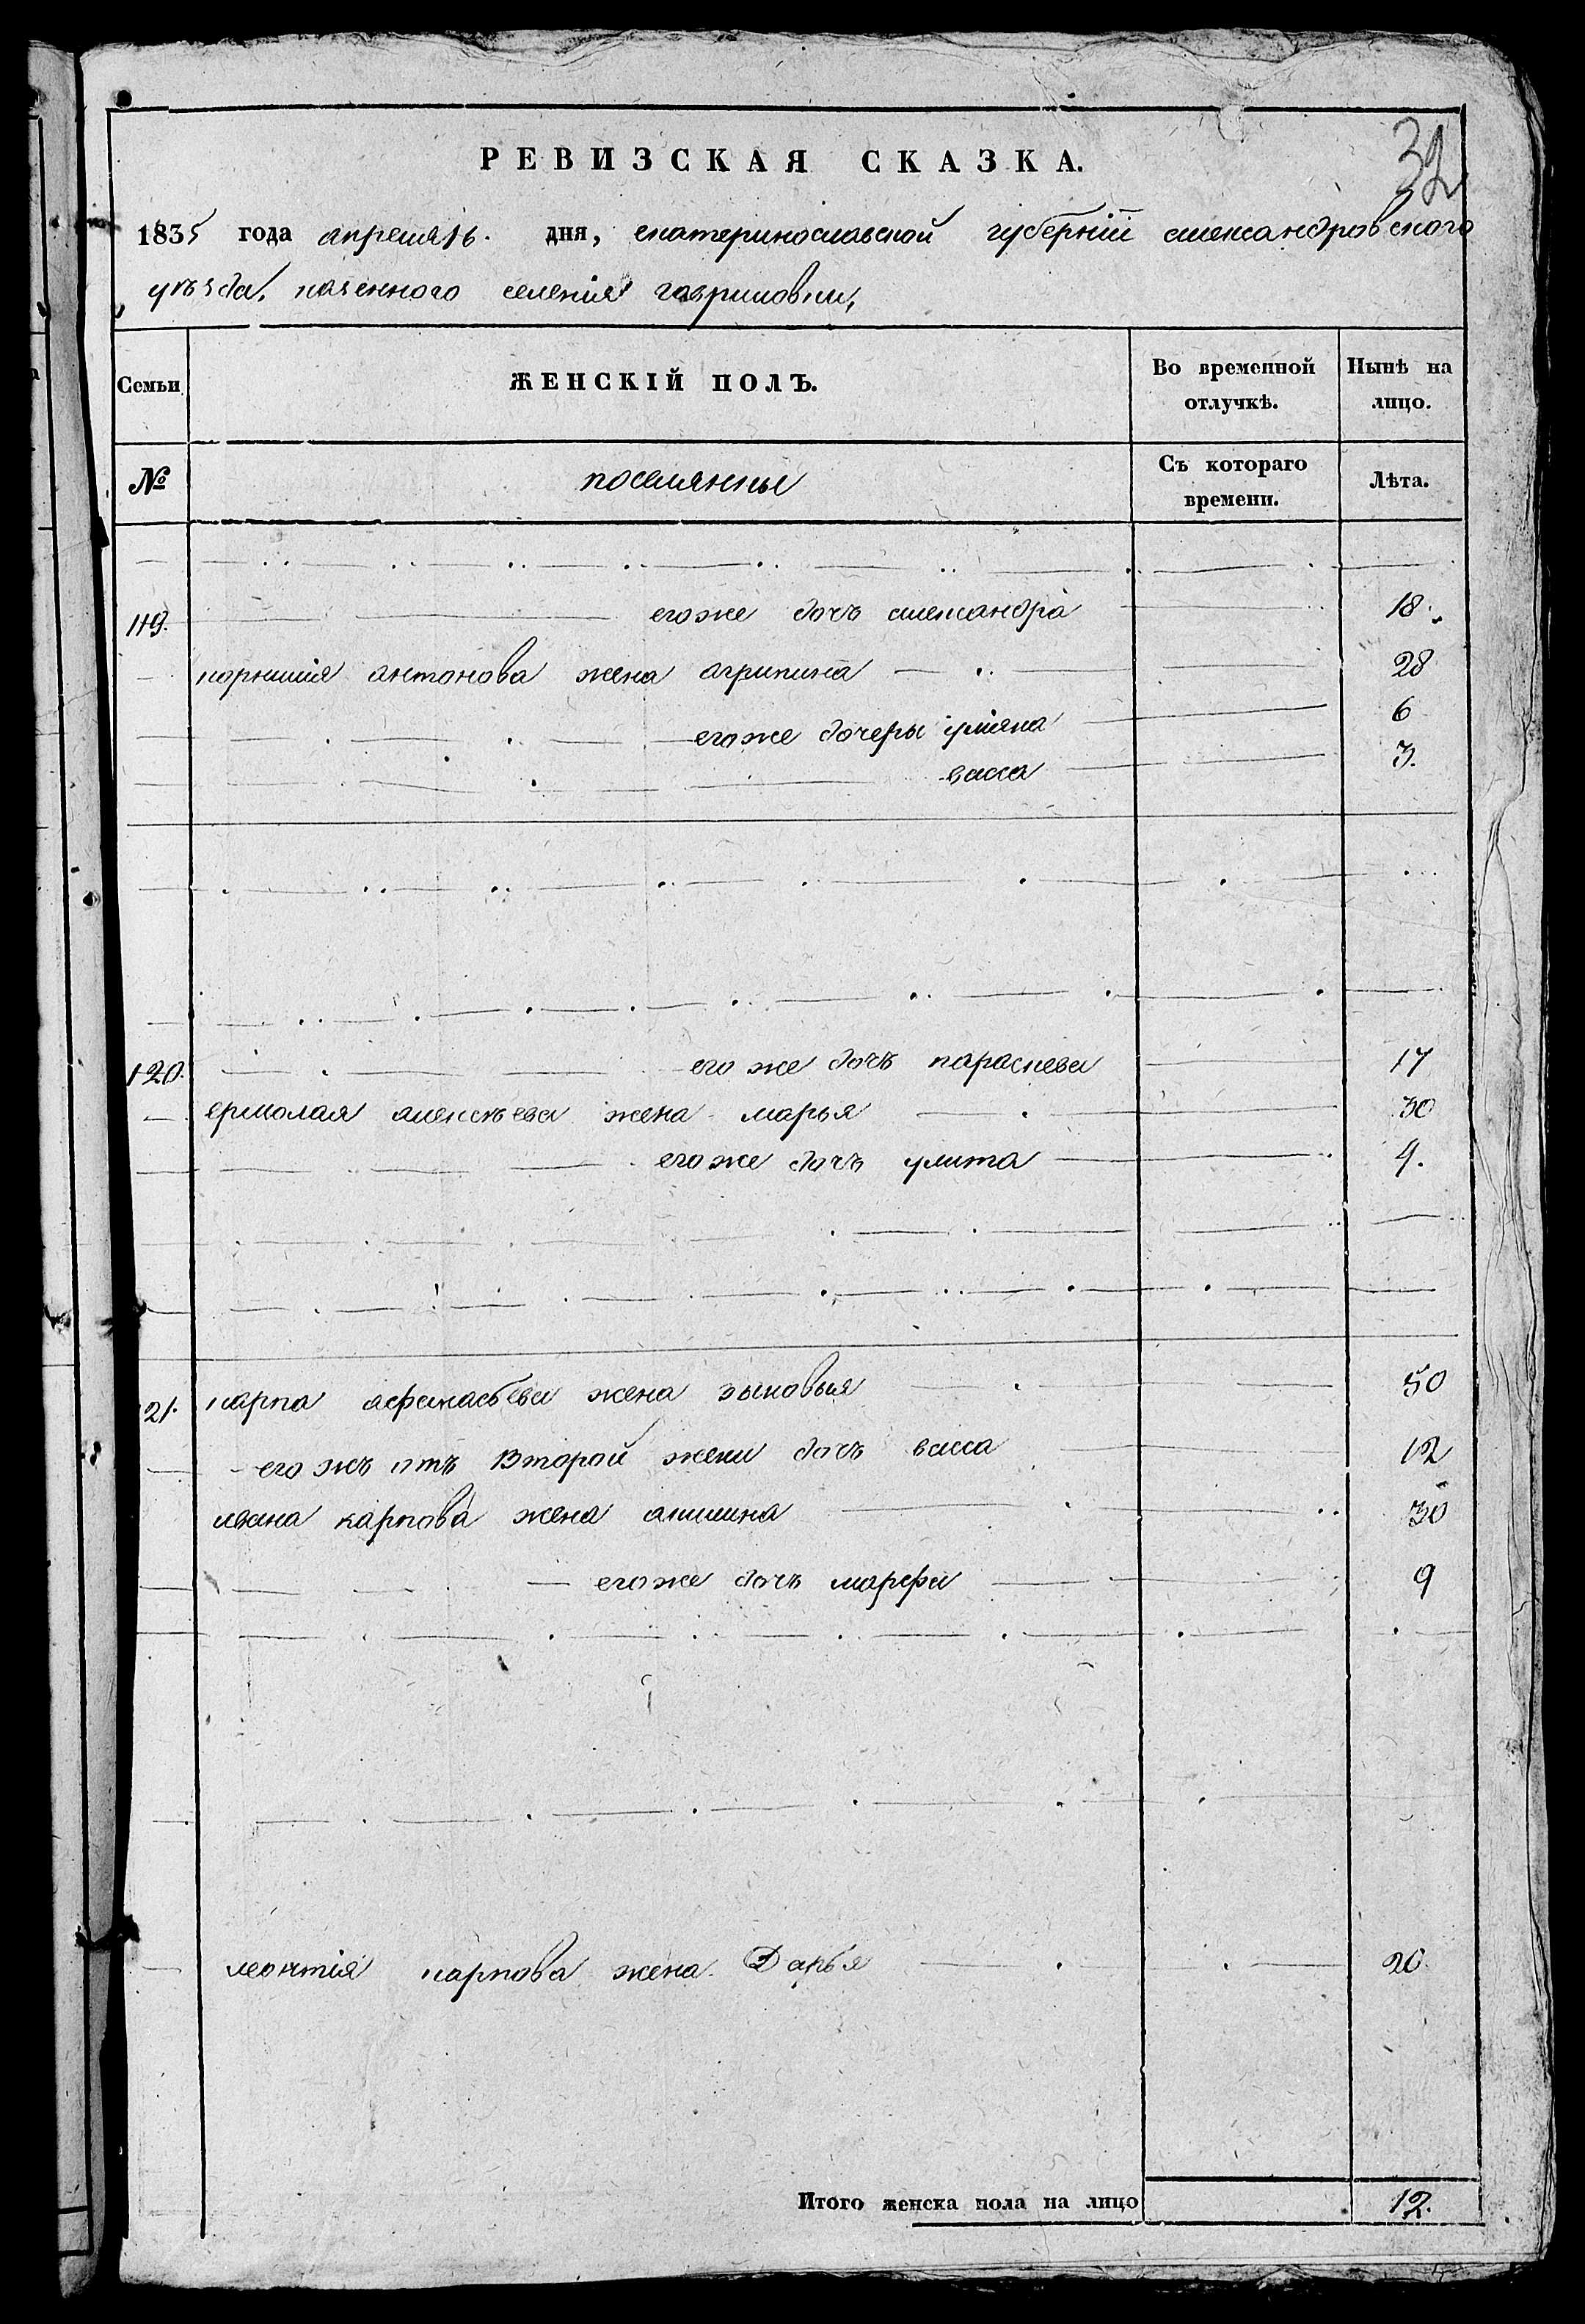 32
РЕВИЗСКАЯ СКАЗКА.
1835 года апреля 16. дня, екатеринославской губерніи александровского
уѣзда, казенного селенія гавриловки,
Семьи ЖЕНСКІЙ ПОЛЪ. Во временной отлучкѣ. Нынѣ на лицо.
№ поселянкы Съ котораго времени. Лѣта.
119. егоже дочъ александра 18.
корнилія антонова жена агрипина 28
егоже дочеры улияна 6
васса 3.
120. его же дочъ параскева 17
ермолая алексѣева жена марья 30
егоже дочъ улита 4.
21. карпа афанасьева жена зыновья 50
его жъ отъ Второй жени дочъ васса 12
ивана карпова жена акилина 30
егоже дочъ марфа 9
леонтія карпова жена Дарья 20.
Итого женска пола на лицо 12.